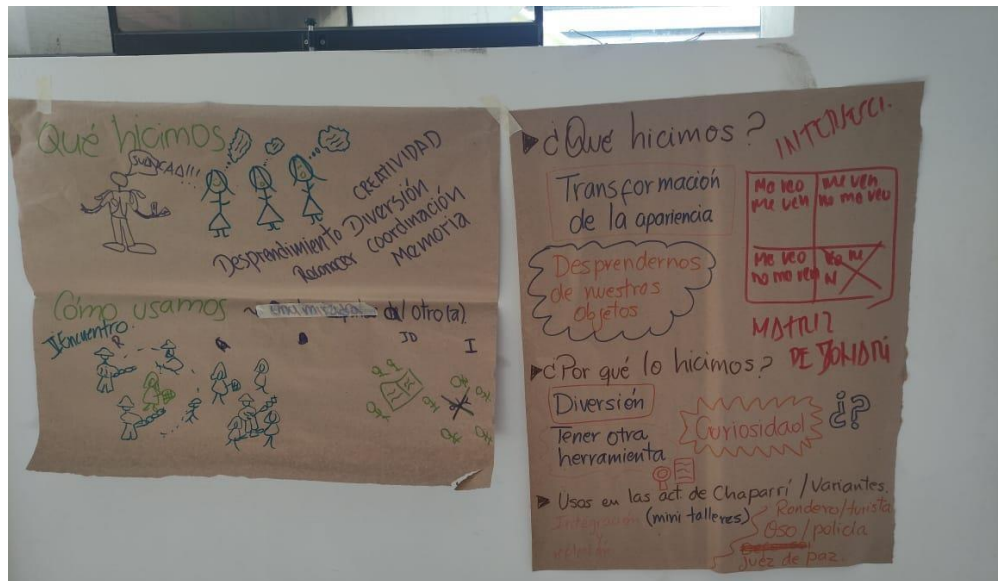 Qué hicimos
CREATIVIDAD
Desprendimiento Diversión
Reconocer Coordinación
Memoria
Cómo usamos
otro(a)
II Encuentro.
R
JD
I
¿Qué hicimos?
INTERSECI.
Transformación
de la apariencia
Me ven
me ven
no me veo
Me veo
no me ven
Desprendernos
de nuestros
objetos
MATRIZ
¿Por qué lo hicimos?
Diversión
Curiosidad
¿?
Tener otra
herramienta
Usos en las act. de Chaparrí / Variantes.
(mini talleres)
Rondero/turista
Oso/policía
juez de paz.